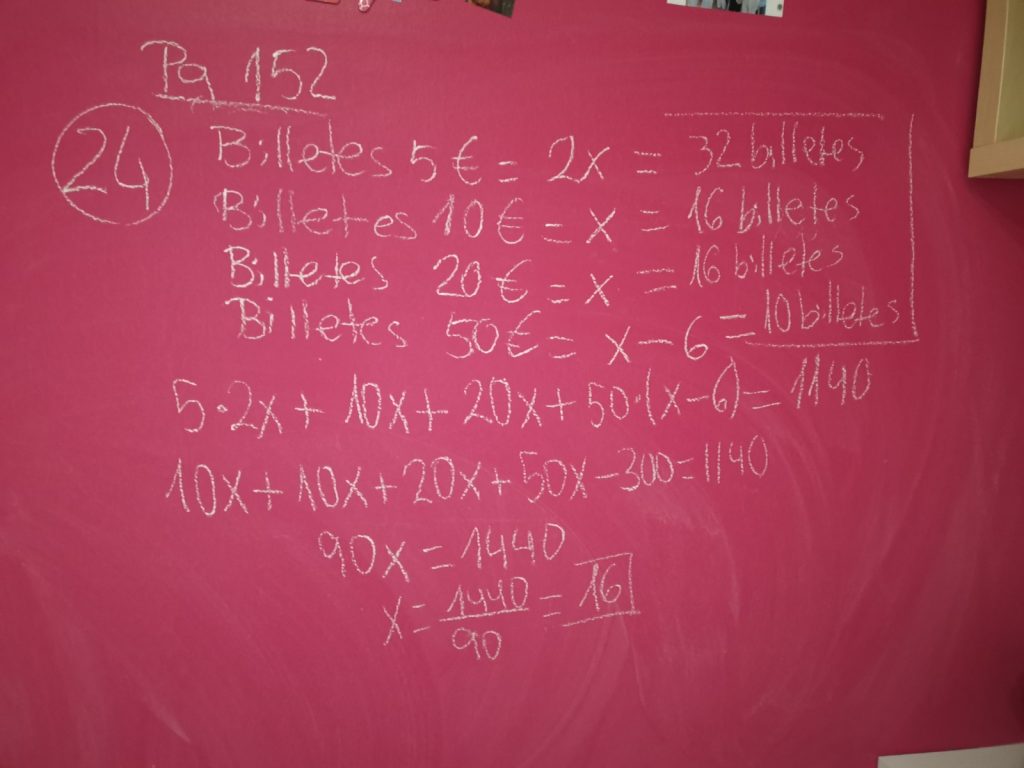 Pg 152
24 Billetes 5€ = 2x = 32 billetes
Billetes 10€ = x = 16 billetes
Billetes 20€ = x = 16 billetes
Billetes 50€ = x - 6 = 10 billetes
5·2x + 10x + 20x + 50·(x - 6) = 1140
10x + 10x + 20x + 50x - 300 = 1140
90x = 1440
x = 1440/90 = 16